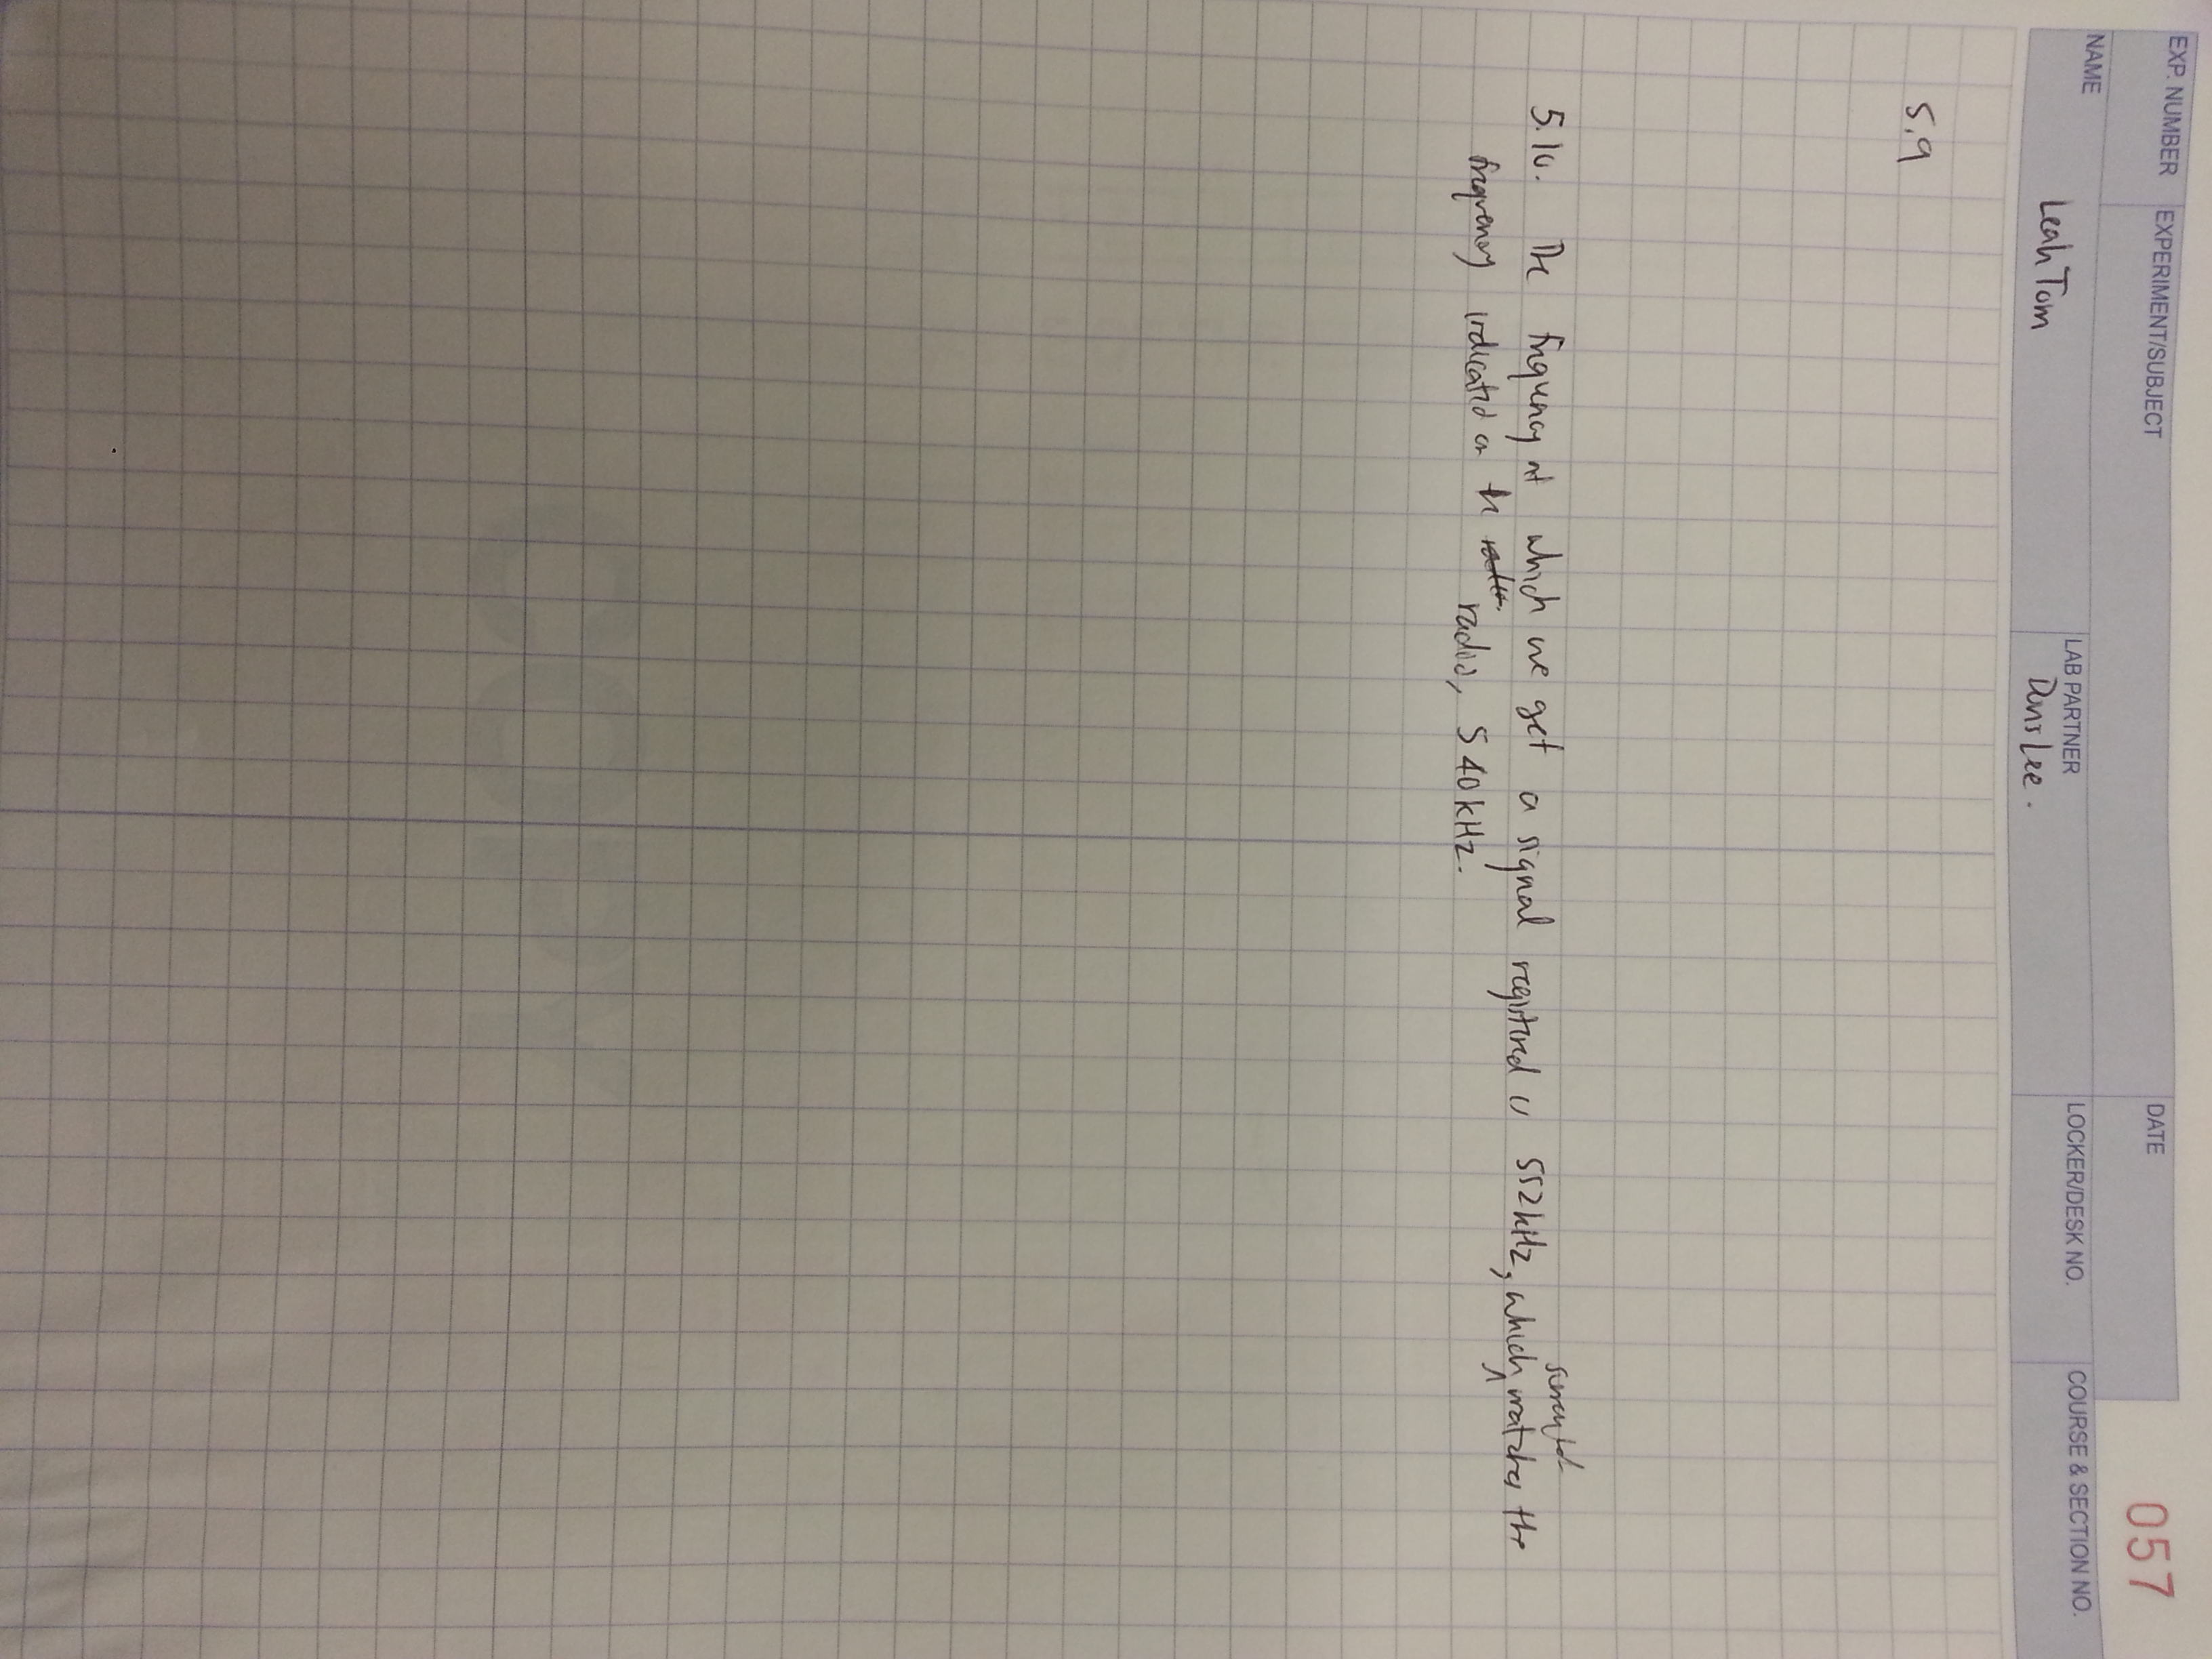 EXP. NUMBER EXPERIMENT/SUBJECT DATE 057
NAME Leah Tom LAB PARTNER LOCKER/DESK NO. COURSE & SECTION NO.
Lee.
5.9
5.10. The frequency at which we get a signal registered is 552kHz, which matches the
frequency indicated on the radio, 540kHz.